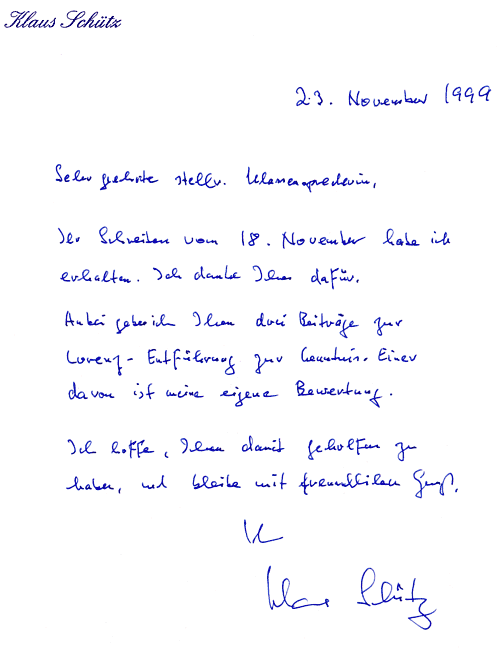 Klaus Schütz
23. November 1999
Sehr geehrte stellv. Klassensprecherin,
Ihr Schreiben vom 18. November habe ich
erhalten. Ich danke Ihnen dafür.
Anbei gebe ich Ihnen drei Beiträge zur
Lorenz-Entführung zur Kenntnis. Einer
davon ist meine eigene Bewertung.
Ich hoffe, Ihnen damit geholfen zu
haben, und bleibe mit freundlichem Gruß,
Ihr
Klaus Schütz